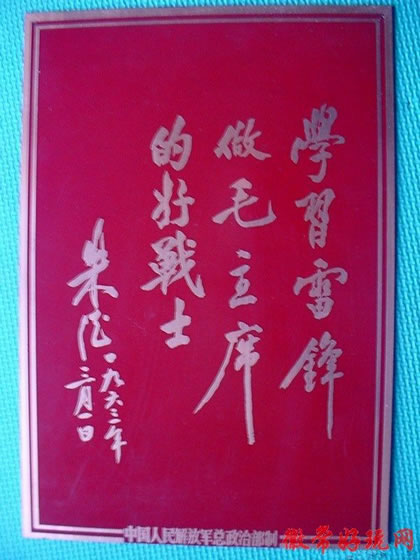 學習雷鋒
做毛主席
的好戰士
朱德
一九六三年
三月一日
中国人民解放军总政治部